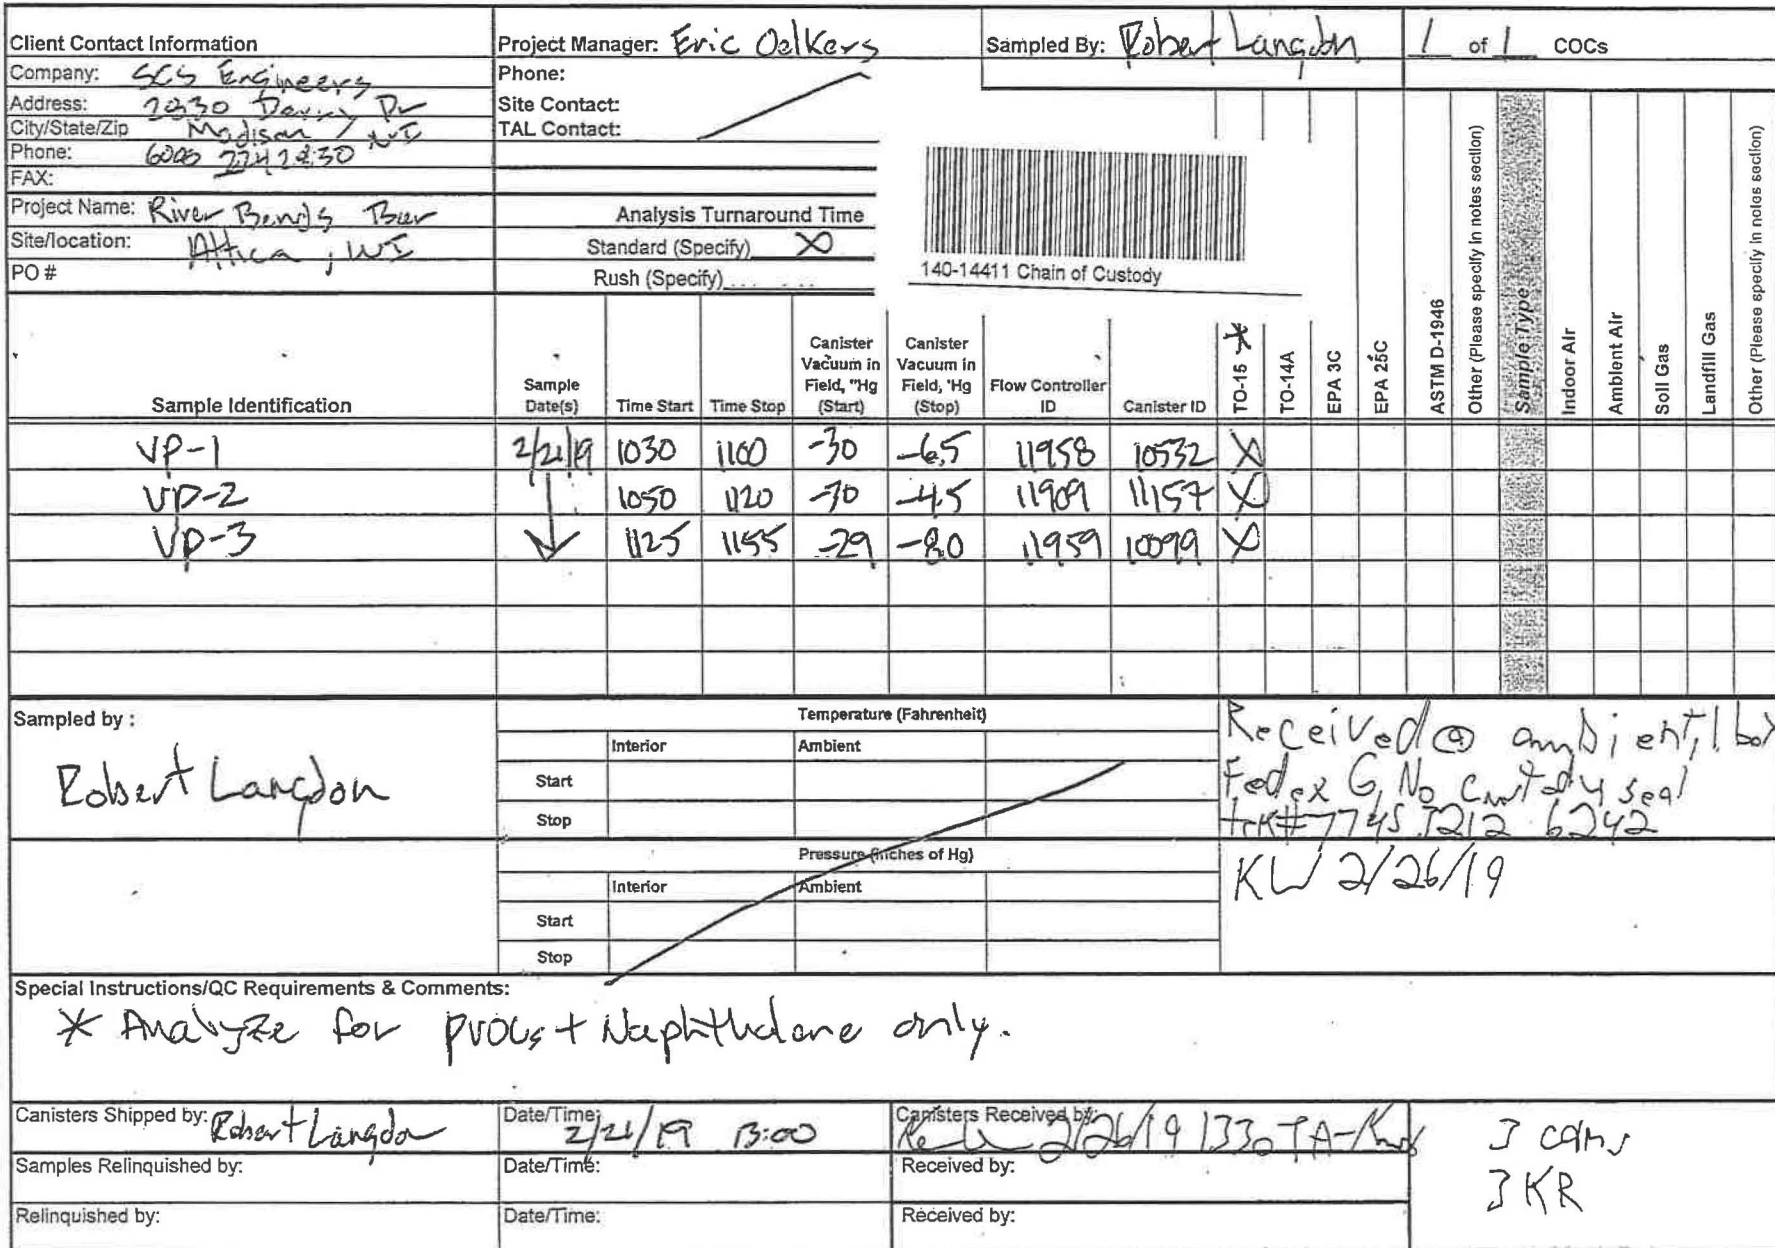 Client Contact Information
Project Manager: Eric Oelkers
Sampled By: Robert Langdon
1 of 1 COCs
Company: SCS Engineers
Phone:
Address: 2830 Dairy Dr
Site Contact:
City/State/Zip Madison, WI
TAL Contact:
Phone: 608 224 2830
FAX:
Project Name: River Bends Bar
Analysis Turnaround Time
Site/location: Attica, WI
Standard (Specify) X
PO #
Rush (Specify)
140-14411 Chain of Custody
Sample Identification
Sample Date(s)
Time Start
Time Stop
Canister Vacuum in Field, "Hg (Start)
Canister Vacuum in Field, 'Hg (Stop)
Flow Controller ID
Canister ID
TO-15 *
TO-14A
EPA 3C
EPA 25C
ASTM D-1946
Other (Please specify in notes section)
Sample Type
Indoor Air
Ambient Air
Soil Gas
Landfill Gas
Other (Please specify in notes section)
VP-1 2/21/19 1030 1100 -30 -6.5 11958 10532 X
VP-2 1050 1120 -30 -4.5 11909 11157 X
VP-3 1125 1155 -29 -8.0 11959 10099 X
Sampled by :
Robert Langdon
Temperature (Fahrenheit)
Interior Ambient
Start
Stop
Pressure (inches of Hg)
Interior Ambient
Start
Stop
Received @ ambient, 1 box
Fedex G, No custody seal
trk# 7745 7212 6242
KW 2/26/19
Special Instructions/QC Requirements & Comments:
* Analyze for PVOCs + Naphthalene only.
Canisters Shipped by: Robert Langdon
Date/Time: 2/21/19 13:00
Canisters Received by: 2/26/19 1330 TA-Knox
3 cans
3 KR
Samples Relinquished by:
Date/Time:
Received by:
Relinquished by:
Date/Time:
Received by: